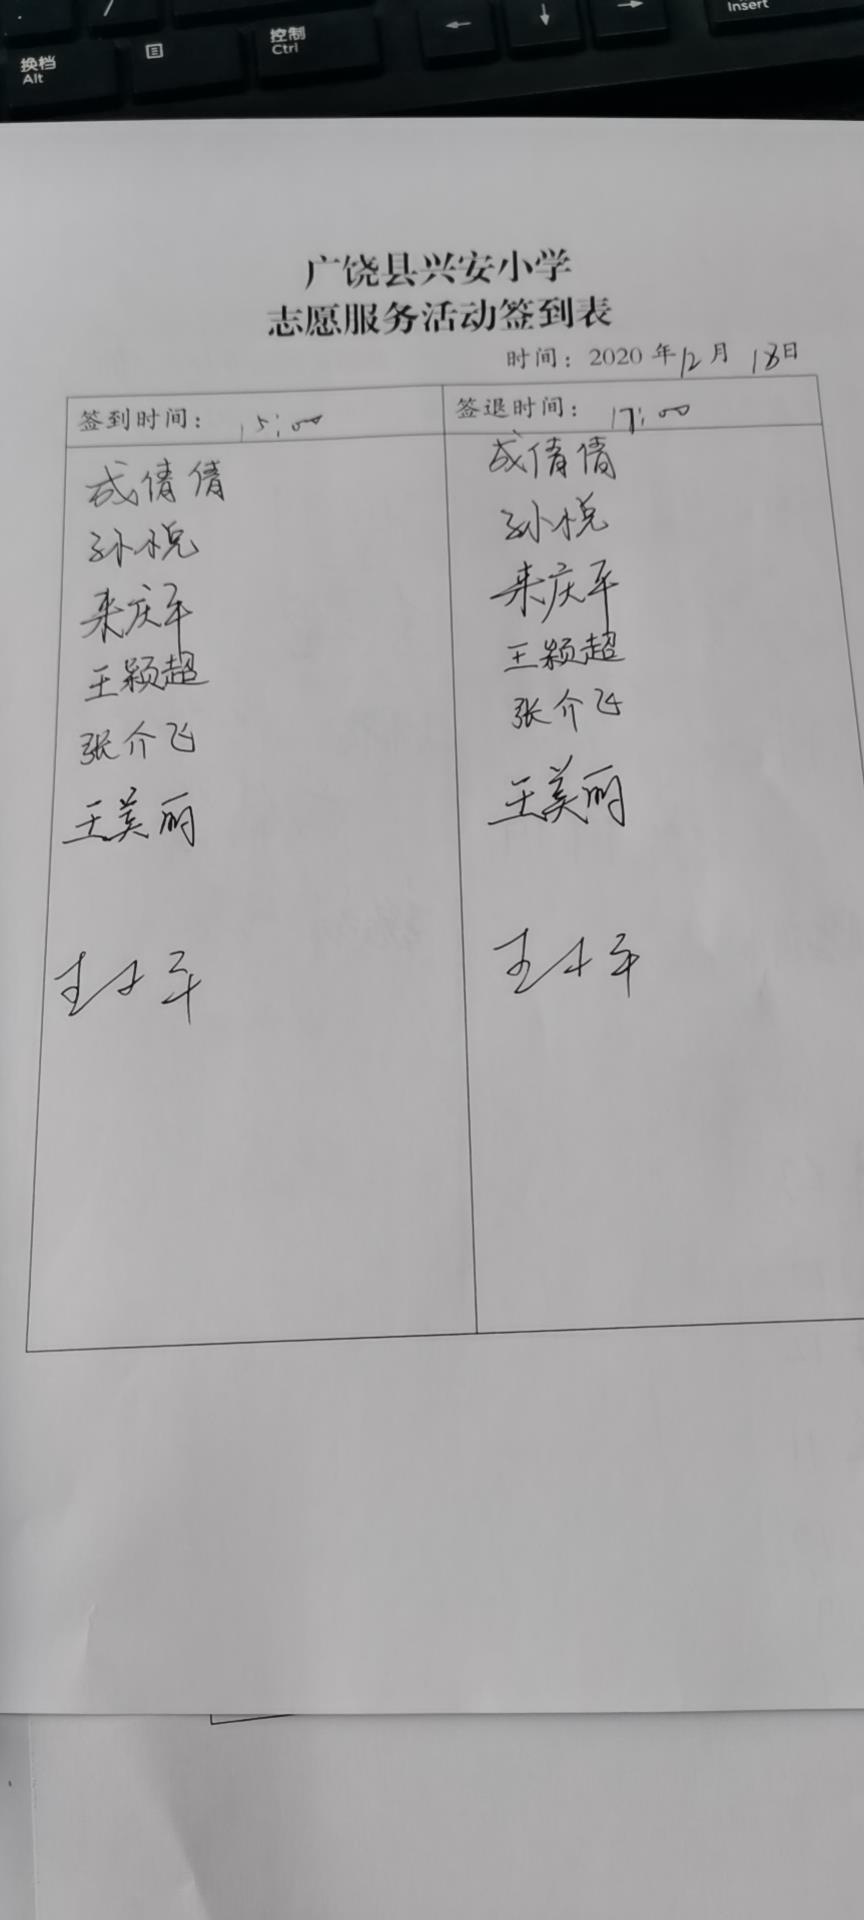 换档
Alt
控制
Ctrl
Insert
广饶县兴安小学
志愿服务活动签到表
时间：2020年12月18日
签到时间：15:00
签退时间：17:00
成倩倩
成倩倩
孙悦
孙悦
来庆军
来庆军
王颖超
王颖超
张介飞
张介飞
王美丽
王美丽
王
王